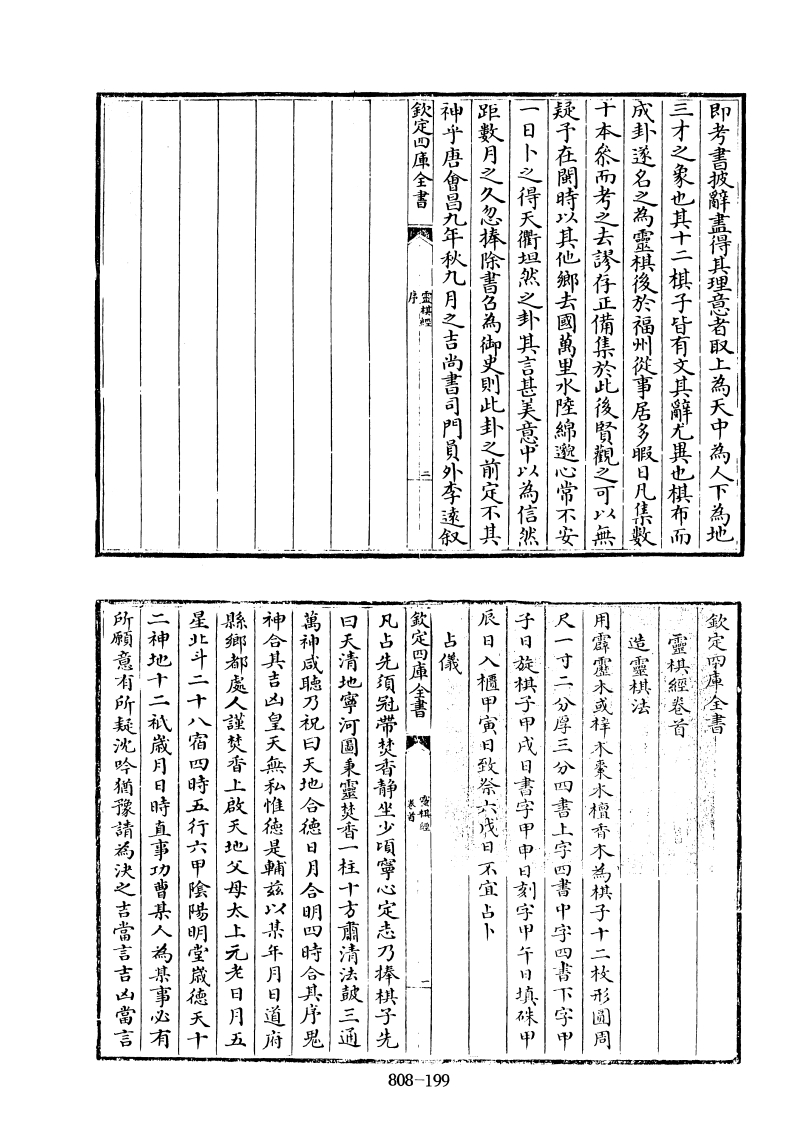 即考書披辭盡得其理意者取上為天中為人下為地
三才之象也其十二棋子皆有文其辭尤異也棋布而
成卦遂名之為靈棋後於福州從事居多暇日凡集數
十本叅而考之去謬存正備集於此後賢觀之可以無
疑予在閩時以其他鄉去國萬里水陸綿邈心常不安
一日卜之得天衢坦然之卦其言甚美意中以為信然
距數月之久忽捧除書召為御史則此卦之前定不其
神乎唐會昌九年秋九月之吉尚書司門員外李逺叙
欽定四庫全書
靈棋經
序
二
欽定四庫全書
靈棋經卷首
造靈棋法
用霹靂木或梓木棗木檀香木為棋子十二枚形圓周
尺一寸二分厚三分四書上字四書中字四書下字甲
子日旋棋子甲戌日書字甲申日刻字甲午日填硃甲
辰日入櫃甲寅日致祭六戊日不宜占卜
占儀
欽定四庫全書
靈棋經
卷首
二
凡占先須冠帶焚香靜坐少頃寧心定志乃捧棋子先
曰天清地寧河圖秉靈焚香一柱十方肅清法鼓三通
萬神咸聽乃祝曰天地合德日月合明四時合其序鬼
神合其吉凶皇天無私惟德是輔兹以某年月日道府
縣鄉都處人謹焚香上啟天地父母太上元老日月五
星北斗二十八宿四時五行六甲陰陽明堂嵗德天十
二神地十二祇嵗月日時直事功曹某人為某事必有
所願意有所疑沈吟猶豫請為決之吉當言吉凶當言
808-199